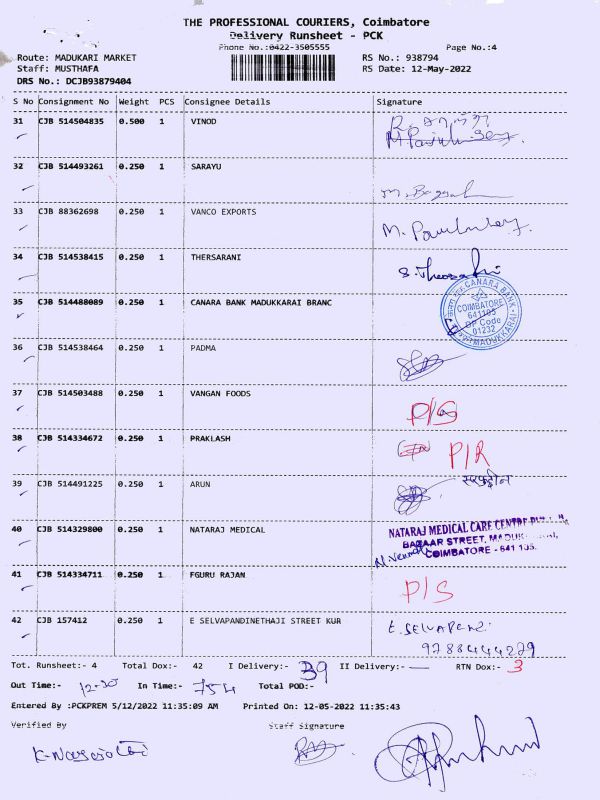 THE PROFESSIONAL COURIERS, Coimbatore
Delivery Runsheet - PCK
Phone No.:0422-3505555 Page No.:4
Route: MADUKARI MARKET RS No.: 938794
Staff: MUSTHAFA RS Date: 12-May-2022
DRS No.: DCJB93879404
S No Consignment No Weight PCS Consignee Details Signature
31 CJB 514504835 0.500 1 VINOD
32 CJB 514493261 0.250 1 SARAYU
33 CJB 88362698 0.250 1 VANCO EXPORTS
34 CJB 514538415 0.250 1 THERSARANI
35 CJB 514488089 0.250 1 CANARA BANK MADUKKARAI BRANC
CANARA BANK
COIMBATORE
641105
DP Code
01232
MADUKKARAI
36 CJB 514538464 0.250 1 PADMA
37 CJB 514503488 0.250 1 VANGAN FOODS P/S
38 CJB 514334672 0.250 1 PRAKLASH P/R
39 CJB 514491225 0.250 1 ARUN
40 CJB 514329800 0.250 1 NATARAJ MEDICAL
NATARAJ MEDICAL CARE CENTRE
BAZAAR STREET,
COIMBATORE - 641 105.
41 CJB 514334711 0.250 1 FGURU RAJAN P/S
42 CJB 157412 0.250 1 E SELVAPANDINETHAJI STREET KUR
Tot. Runsheet:- 4 Total Dox:- 42 I Delivery:- 39 II Delivery:- — RTN Dox:- 3
Out Time:- 12-30 In Time:- 754 Total POD:-
Entered By :PCKPREM 5/12/2022 11:35:09 AM Printed On: 12-05-2022 11:35:43
Verified By Staff Signature